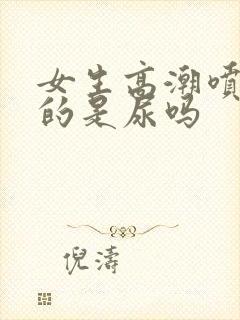 女生高潮噴
的是尿吗
倪濤